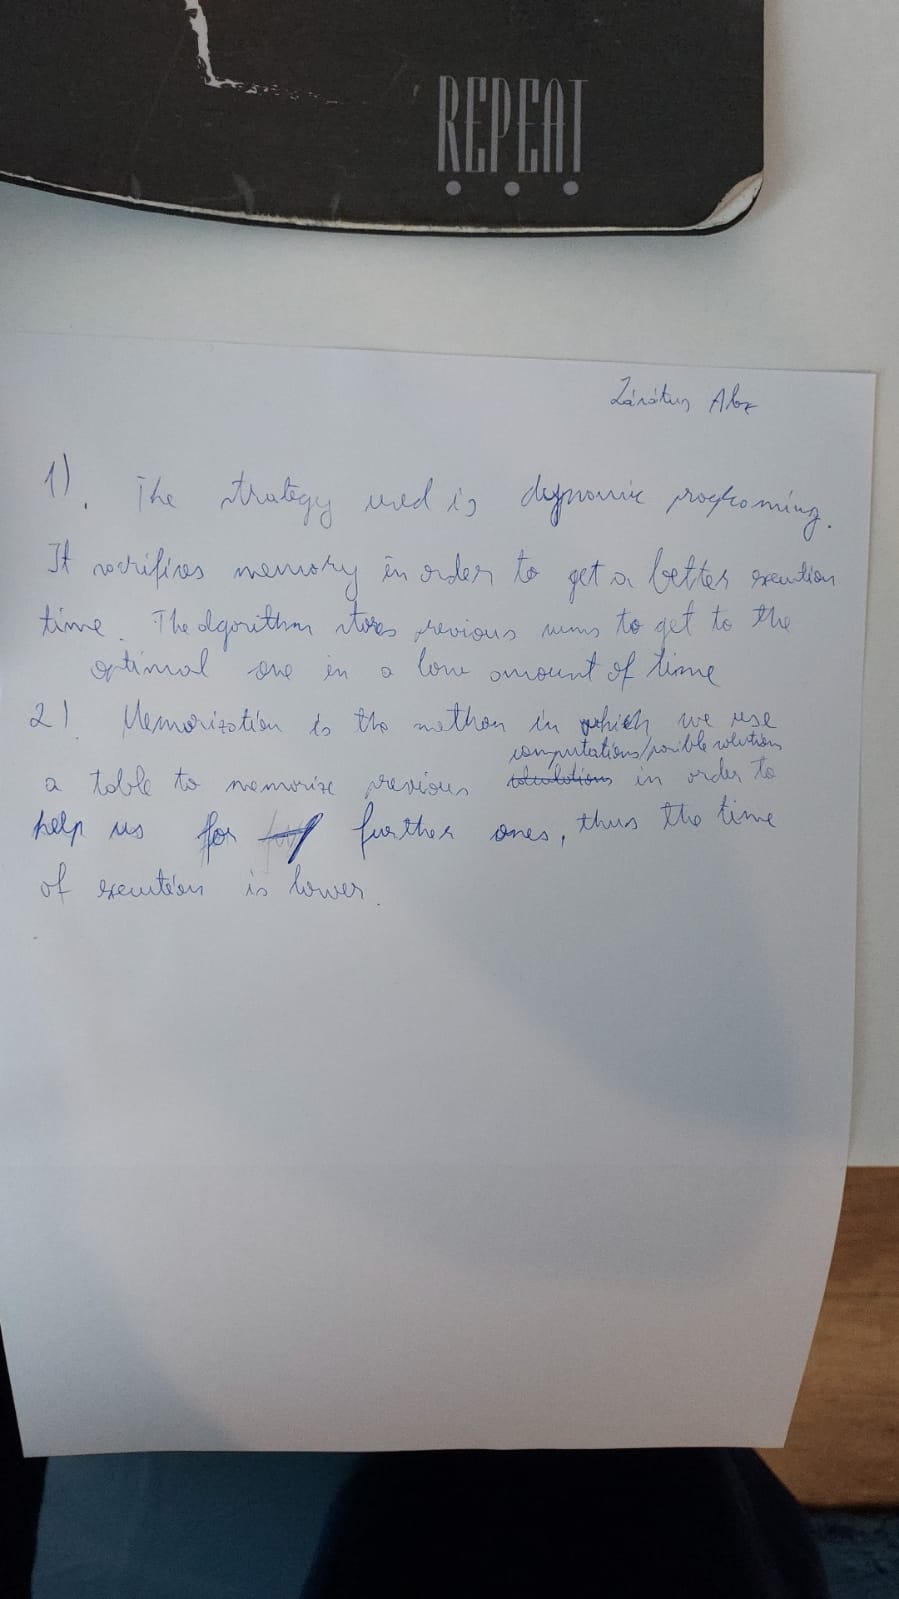 REPEAT
Alex
1). The strategy used is dypnamic programing.
It sacrifises memory in order to get a better execution
time. The algorithm stores previous sums to get to the
optimal one in a low amount of time
2). Memorization is the methon in which we use
computations/posible solutions
a table to memorize previous calculations in order to
help us for further ones, thus the time
of execution is lower.